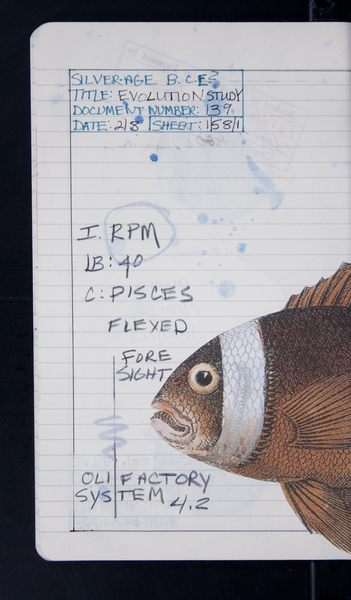 SILVER-AGE B.C.E?
TITLE: EVOLUTION STUDY
DOCUMENT NUMBER: 139
DATE: 2/8 SHEET: 158/1
I. RPM
LB: 40
C: PISCES
FLEXED
FORE
SIGHT
OLI FACTORY
SYSTEM 4.2